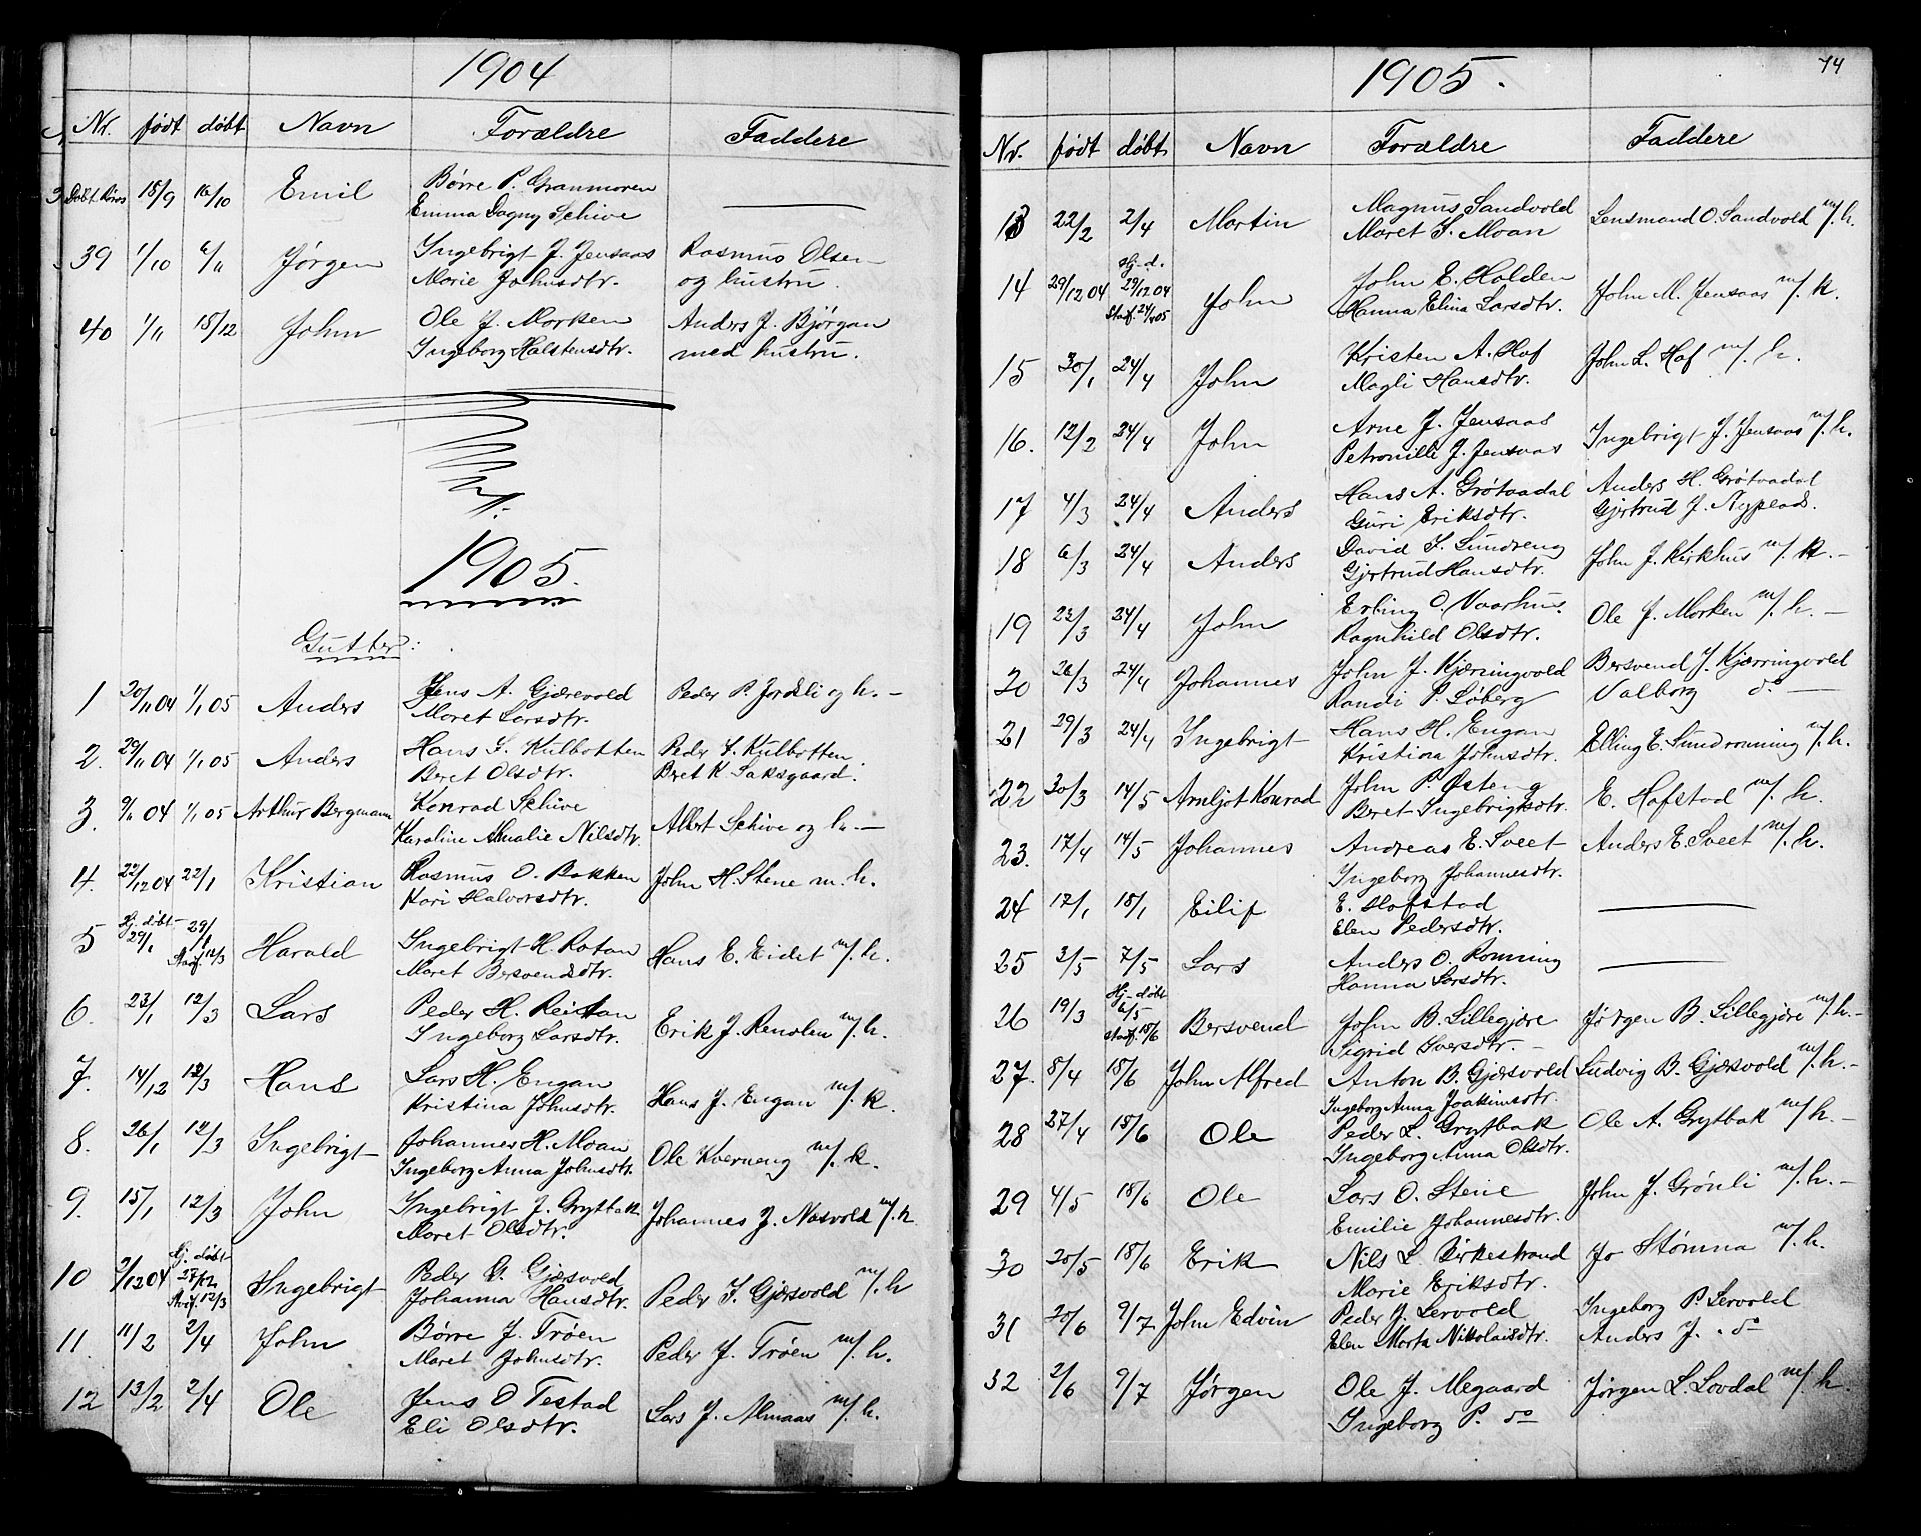 1904
Nr. født døbt Navn Forældre Faddere
Døbt. Röros 18/9 16/10 Emil Børre P. Granmoren
Emma Dagny Schive
39 1/10 6/11 Jørgen Ingebrigt J. Jensaas Rasmus Olsen
Marie Johnsdtr. og hustru.
40 1/11 18/12 John Ole J. Morken Anders J. Bjørgan
Ingeborg Halstensdtr. med hustru.
1905.
Gutter:
1 20/11 04 1/1 05 Anders Jens A. Gjærevold Peder P. Jordeli og h. —
Maret Larsdtr.
2. 29/11 04 1/1 05 Anders Hans S. Kulbotten Peder S. Kulbotten.
Beret Olsdtr. Beret K. Saksgaard.
3. 9/11 04 1/1 05 Arthur Bergmann Konrad Schive Albert Schive og h. —
Karoline Amalie Nilsdtr.
4. 22/12 04 22/1 Kristian Rasmus O. Bakken John H. Stene m. h.
Kari Halvorsdtr.
5 Hj. døbt 29/1 29/1 Stadf. 12/3 Harald Ingebrigt H. Rotan Hans E. Eidet m/. h.
Maret Bersvendsdtr.
6. 23/1 12/3 Lars Peder H. Reitan Erik J. Renolen m/. h.
Ingeborg Larsdtr.
7. 14/12 12/3 Hans Lars H. Engan Hans J. Engan m/. k.
Kristina Johnsdtr.
8. 26/1 12/3 Ingebrigt Johannes H. Moan Ole Kverneng m/. k.
Ingeborg Anna Johnsdtr.
9. 15/1 12/3 John Ingebrigt J. Grytbak Johannes J. Nasvold m/. k
Maret Olsdtr.
10 2/12 04 Hj. døbt 27/12 Stadf. 12/3 Ingebrigt Peder G. Gjærsvold Peder I. Gjærsvold m/. h
Johanna Hansdtr.
11. 11/2 2/4 John Børre J. Trøen Peder J. Trøen m/. h.
Maret Johnsdtr.
12 13/2 2/4 Ole Jens O Testad Lars J. Almaas m/. h.
Eli Olsdtr.
1905. 74
Nr. født døbt Navn Forældre Faddere
13 22/2 2/4 Martin Magnus Sandvold Lensmand O. Sandvold m/. h.
Maret I. Moan
14 29/12 04 Hj-d. 29/12 04 Stadf. 24/4 05 John John E. Holden John M. Jensaas m/. k.
Hanna Elina Larsdtr.
15 30/1 24/4 John Kristen A. Hof John L. Hof m/. h.
Magli Hansdtr.
16. 12/2 24/4 John Arne J. Jensaas Ingebrigt J. Jensaas m/. h.
Petronille J. Jensaas
17 4/3 24/4 Anders Hans A. Grøtaadal Anders H. Grøtaadal
Guri Eriksdtr. Gjertrud J. Nyplads.
18 6/3 24/4 Anders David I. Sundreng John J. Kirkhus m/. k. —
Gjertrud Hansdtr.
19 23/3 24/4 John Erling O. Vaarhus. Ole J. Morken m/. h. —
Ragnhild Olsdtr.
20 26/3 24/4 Johannes John J. Kjærringvold Bersvend J. Kjærringvold
Randi P. Løberg Valborg do —
21 29/3 24/4 Ingebrigt Hans H. Engan Elling E. Sundrønning m/. h.
Kristina Johnsdtr.
22 30/3 14/5 Arnljot Konrad John P. Østeng E. Hofstad m/. h.
Beret Ingebrigtsdtr.
23. 17/4 14/5 Johannes Andreas E. Sveet Anders E. Sveet m/. h.
Ingeborg Johannesdtr.
24 17/1 18/1 Eilif E. Hofstad
Elen Pedersdtr.
25 3/5 7/5 Lars Anders O. Rønning
Hanna Larsdtr.
26 19/3 Hj-døbt 6/5 Stadf. 18/6 Bersvend John B. Lillegjøre Jørgen B. Lillegjøre m/. h. —
Sigrid Iversdtr. —
27. 8/4 18/6 John Alfred Anton B. Gjærsvold Ludvig B. Gjærsvold m/. h. —
Ingeborg Anna Joakimsdtr.
28 27/4 18/6 Ole Peder L. Grytbak Ole A. Grytbak m/ h. —
Ingeborg Anna Olsdtr.
29 4/5 18/6 Ole Lars O. Stene John J. Grønli m/. h. —
Emilie Johannesdtr.
30 20/5 18/6 Erik Nils L. Birkestrand Jo Stømna m/. h.
Marie Eriksdtr.
31 20/6 9/7 John Edvin Peder J. Lervold Ingeborg P. Lervold
Elen Marta Nikolaisdtr. Anders J. do
32 2/6 9/7 Jørgen Ole J. Megaard Jørgen L. Løvdal m/ h.
Ingeborg P. do